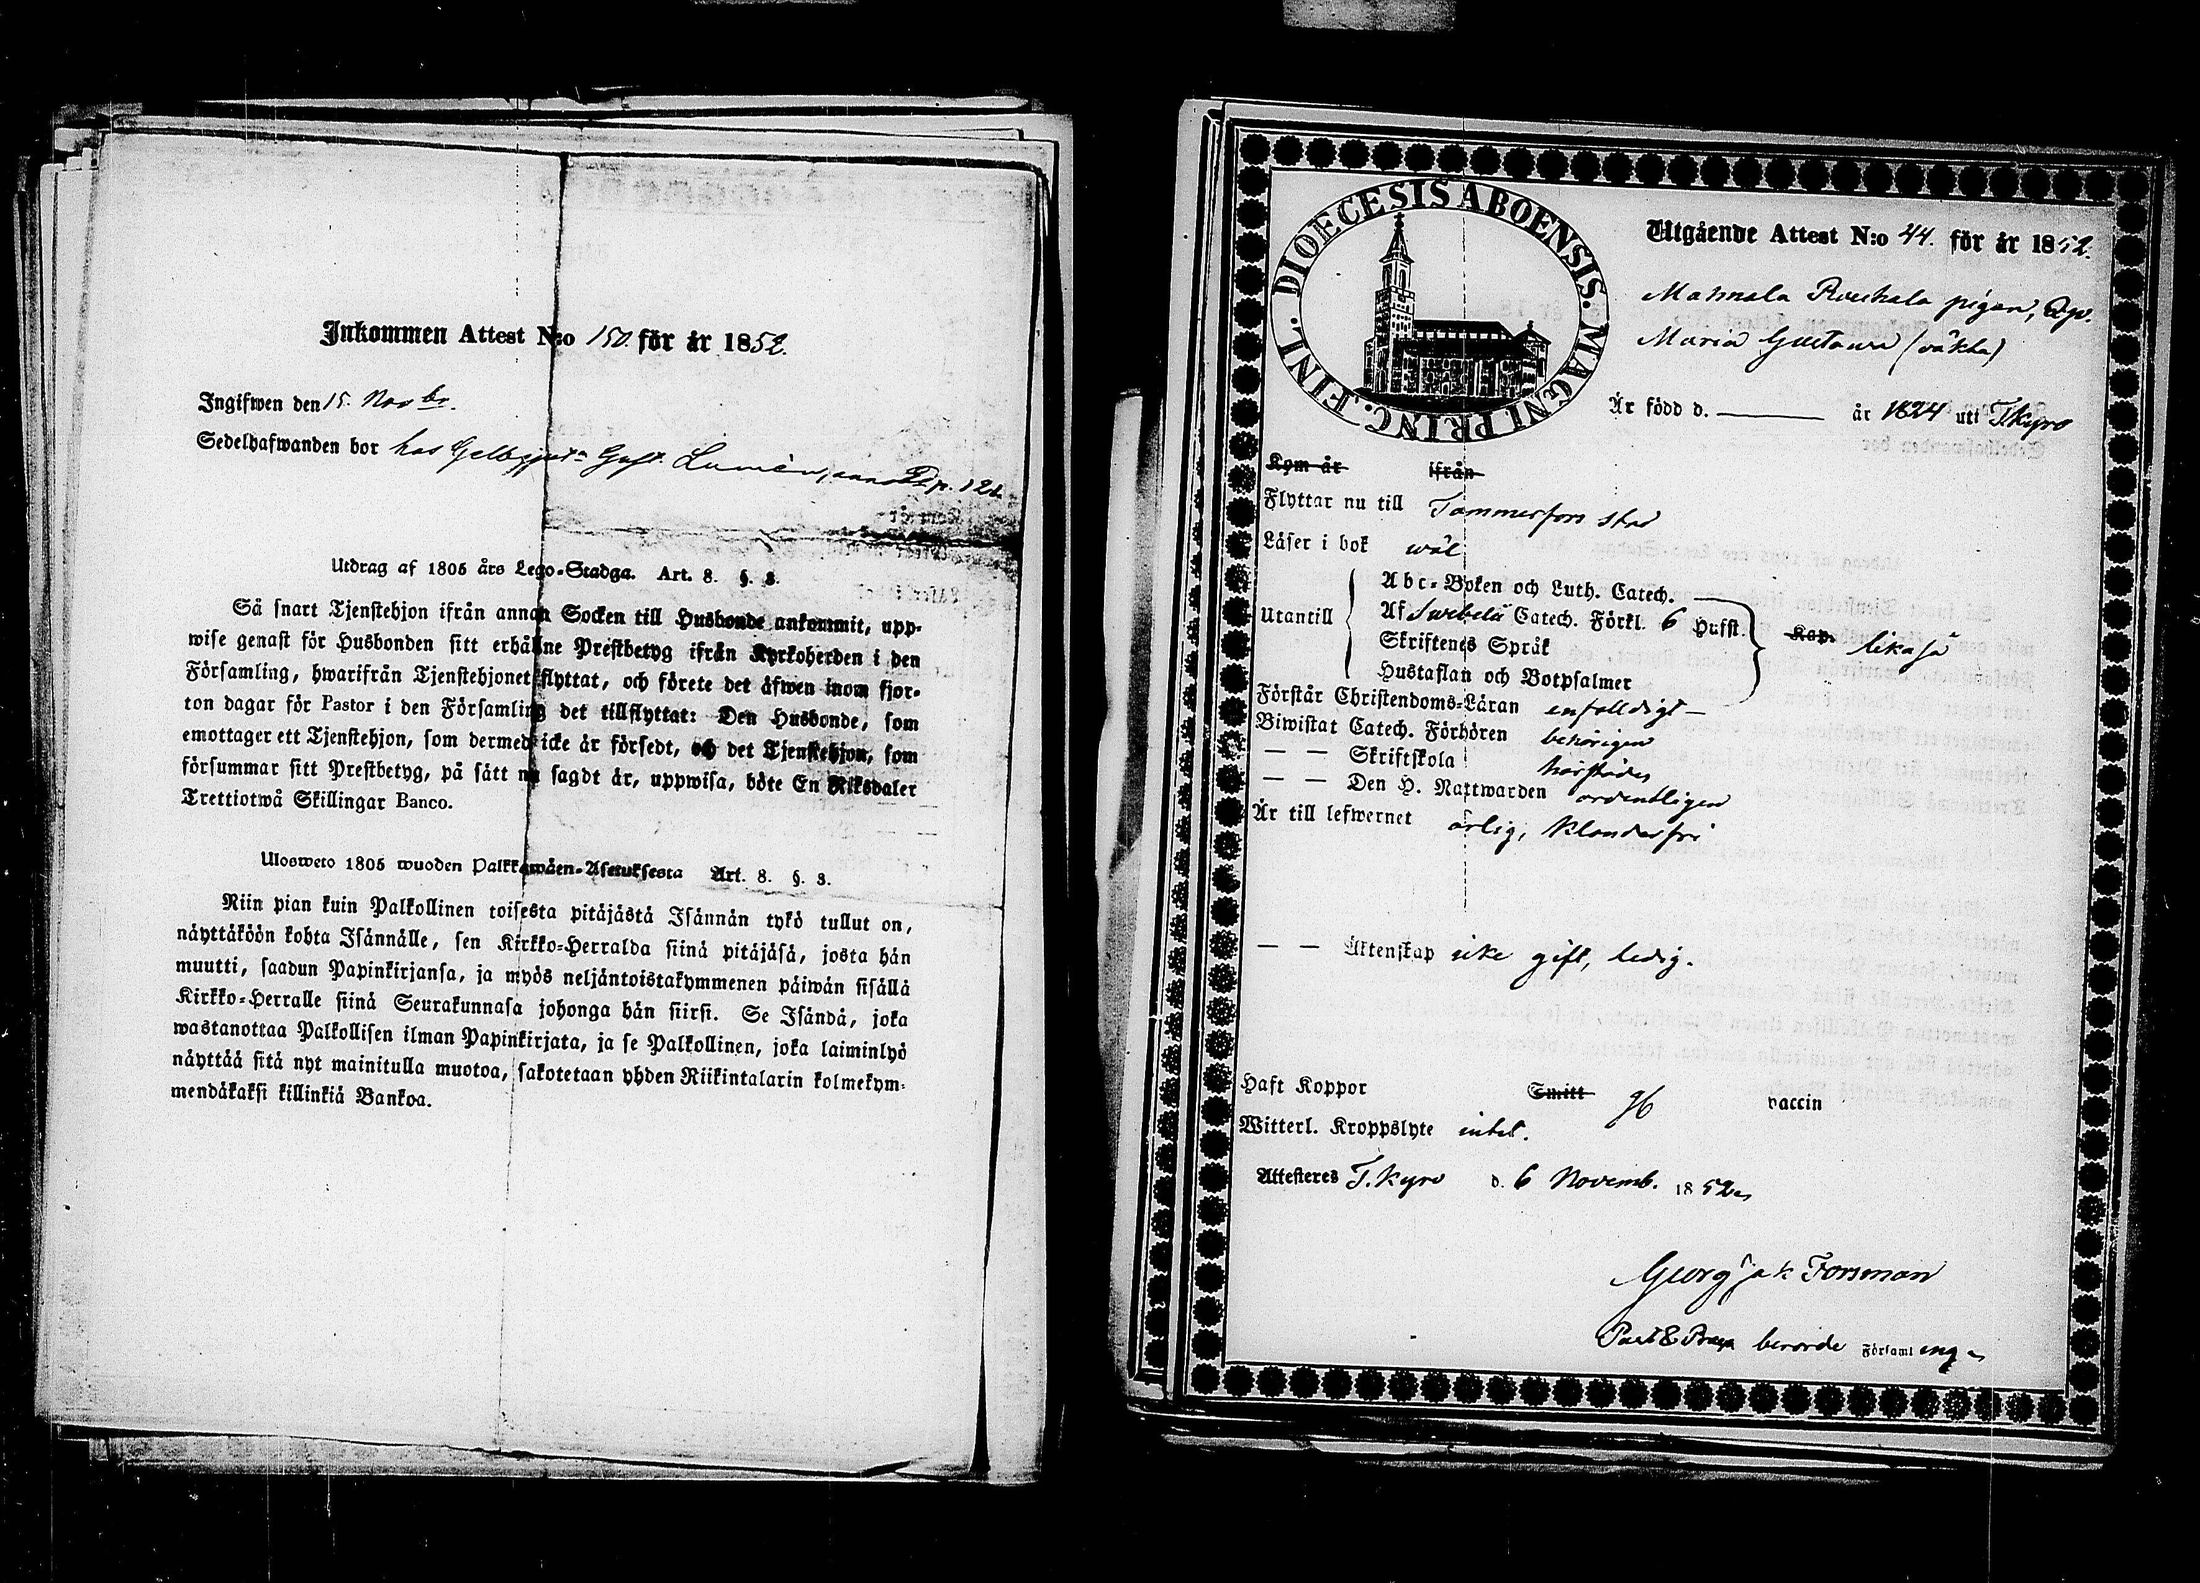 Inkommen Attest N:o 150. för år 1852.
Ingifwen den 15. Novbr.
Sedelhafwanden bor hos Gust. Lumén,
Utdrag af 1805 års Lego-Stadga. Art. 8. §. 3.
Så snart Tjenstehjon ifrån annan Socken till Husbonde ankommit, upp-
wise genast för Husbonden sitt erhållne Prestbetyg ifrån Kyrkoherden i den
Församling, hwarifrån Tjenstehjonet flyttat, och förete det äfwen inom fjor-
ton dagar för Pastor i den Församling det tillflyttat: Den Husbonde, som
emottager ett Tjenstehjon, som dermed icke är försedt, och det Tjenstehjon, som
försummar sitt Prestbetyg, på sätt nu sagdt är, uppwisa, böte En Riksdaler
Trettiotwå Skillingar Banco.
Ulosweto 1805 wuoden Palkkawäen-Asetuksesta Art. 8. §. 3.
Niin pian kuin Palkollinen toisesta pitäjästä Isännän tykö tullut on,
näyttäköön kohta Isännälle, sen Kirkko-Herralda siinä pitäjäsä, josta hän
muutti, saadun Papinkirjansa, ja myös neljäntoistakymmenen päiwän sisällä
Kirkko-Herralle siinä Seurakunnasa johonga hän siirsi. Se Isändä, joka
wastanottaa Palkollisen ilman Papinkirjata, ja se Palkollinen, joka laiminlyö
näyttää sitä nyt mainitulla muotoa, sakotetaan yhden Riikintalarin kolmekym-
mendäkaksi killinkiä Bankoa.
DIOECESIS ABOENSIS. MAGNI PRINC. FINL.
Utgående Attest N:o 44. för år 1852.
Mahnala pigan,
Maria Gustava
Är född d. — år 1824 uti T.kyro
Kom år ifrån
Flyttar nu till Tammerfors stad
Läser i bok wäl
Utantill
Abc-Boken och Luth. Catech. —
Af Swebelii Catech. Förkl. 6 Hufst.
Skriftenes Språk
Hustaflan och Botpsalmer
Kap. likaså
Förstår Christendoms-Läran enfalldigt —
Biwistat Catech. Förhören behörigen
— — Skriftskola härstädes
— — Den H. Nattwarden ordentligen
Är till lefwernet ärlig, klanderfri
— — Äktenskap icke gift, ledig.
Haft Koppor Smitt vaccin
Witterl. Kroppslyte intet.
Attesteres T.kyro d. 6 Novemb. 1852
Georg Jak Forsman
berörde Församl